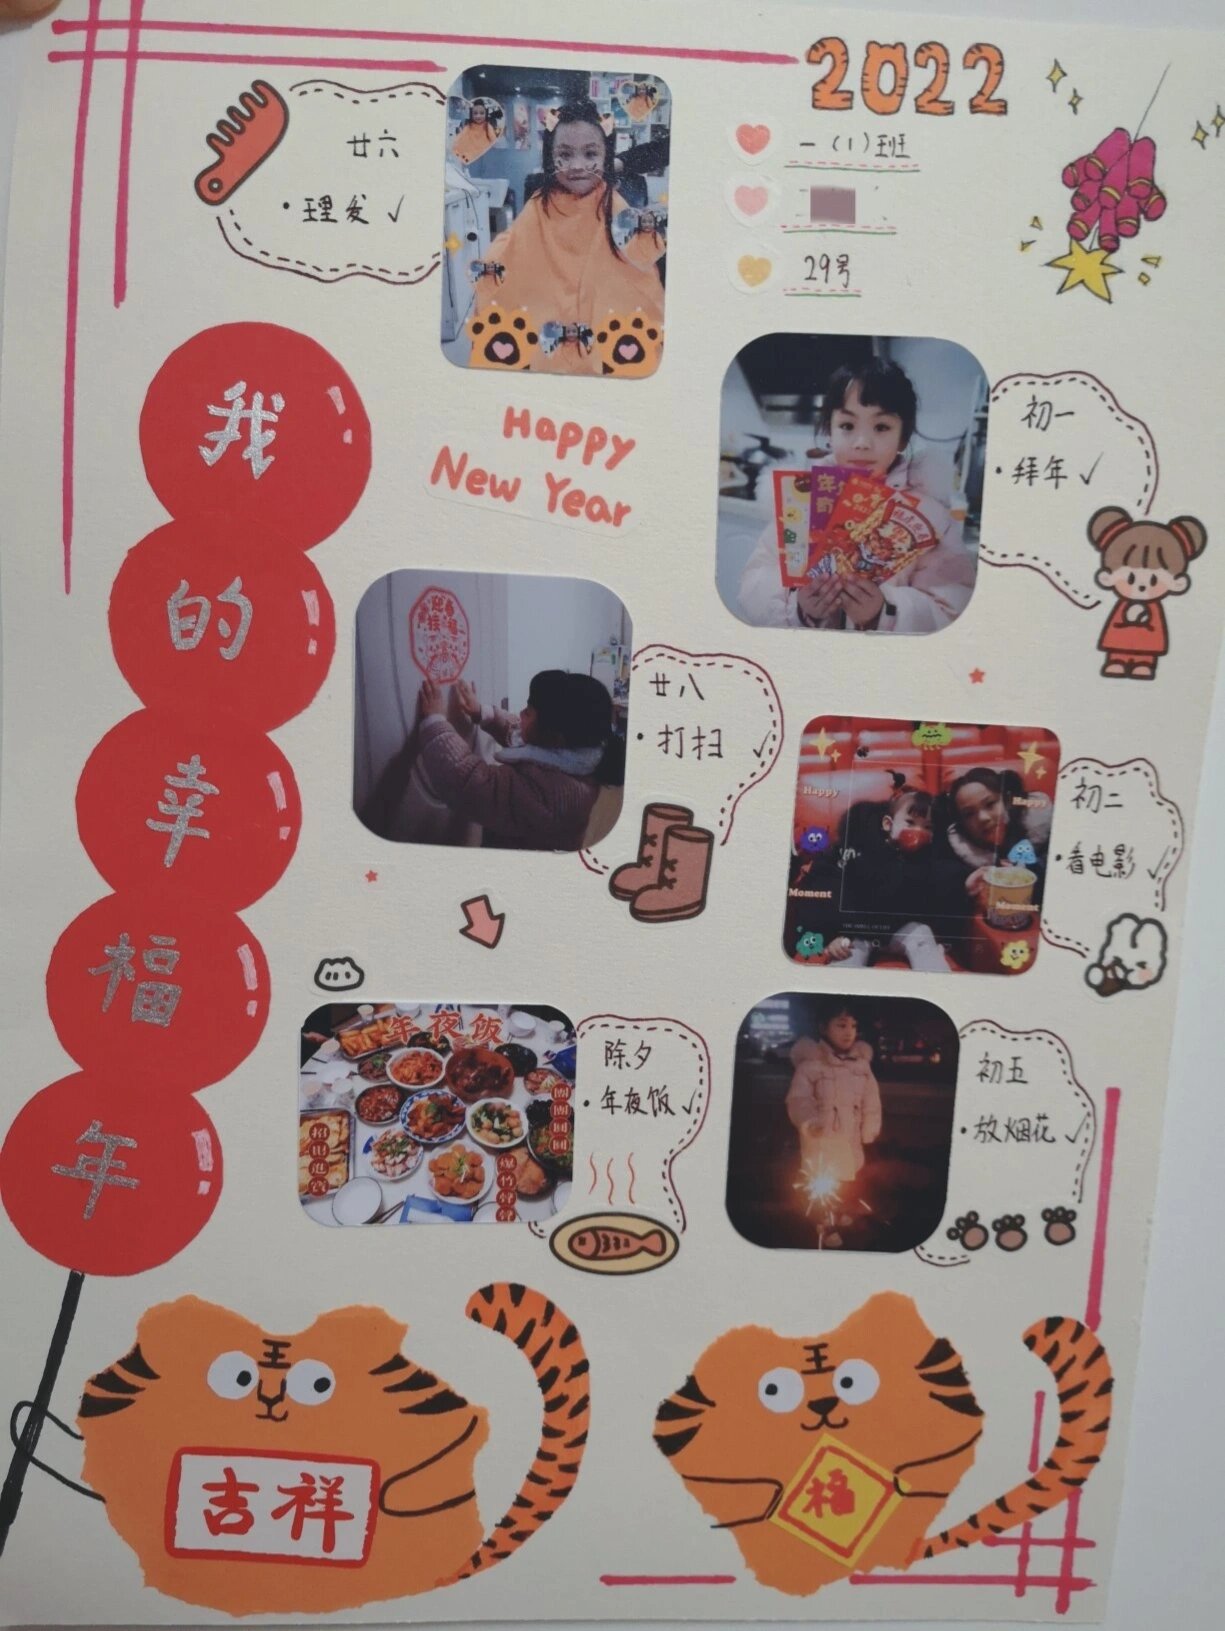 2022
一（1）班
29号
廿六
·理发✓
我的幸福年
Happy
New Year
初一
·拜年✓
廿八
·打扫✓
初二
·看电影✓
Happy
Happy
Moment
Moment
年夜饭
招财进宝
团团圆圆
爆竹声声
除夕
·年夜饭✓
初五
·放烟花✓
王
吉祥
王
福